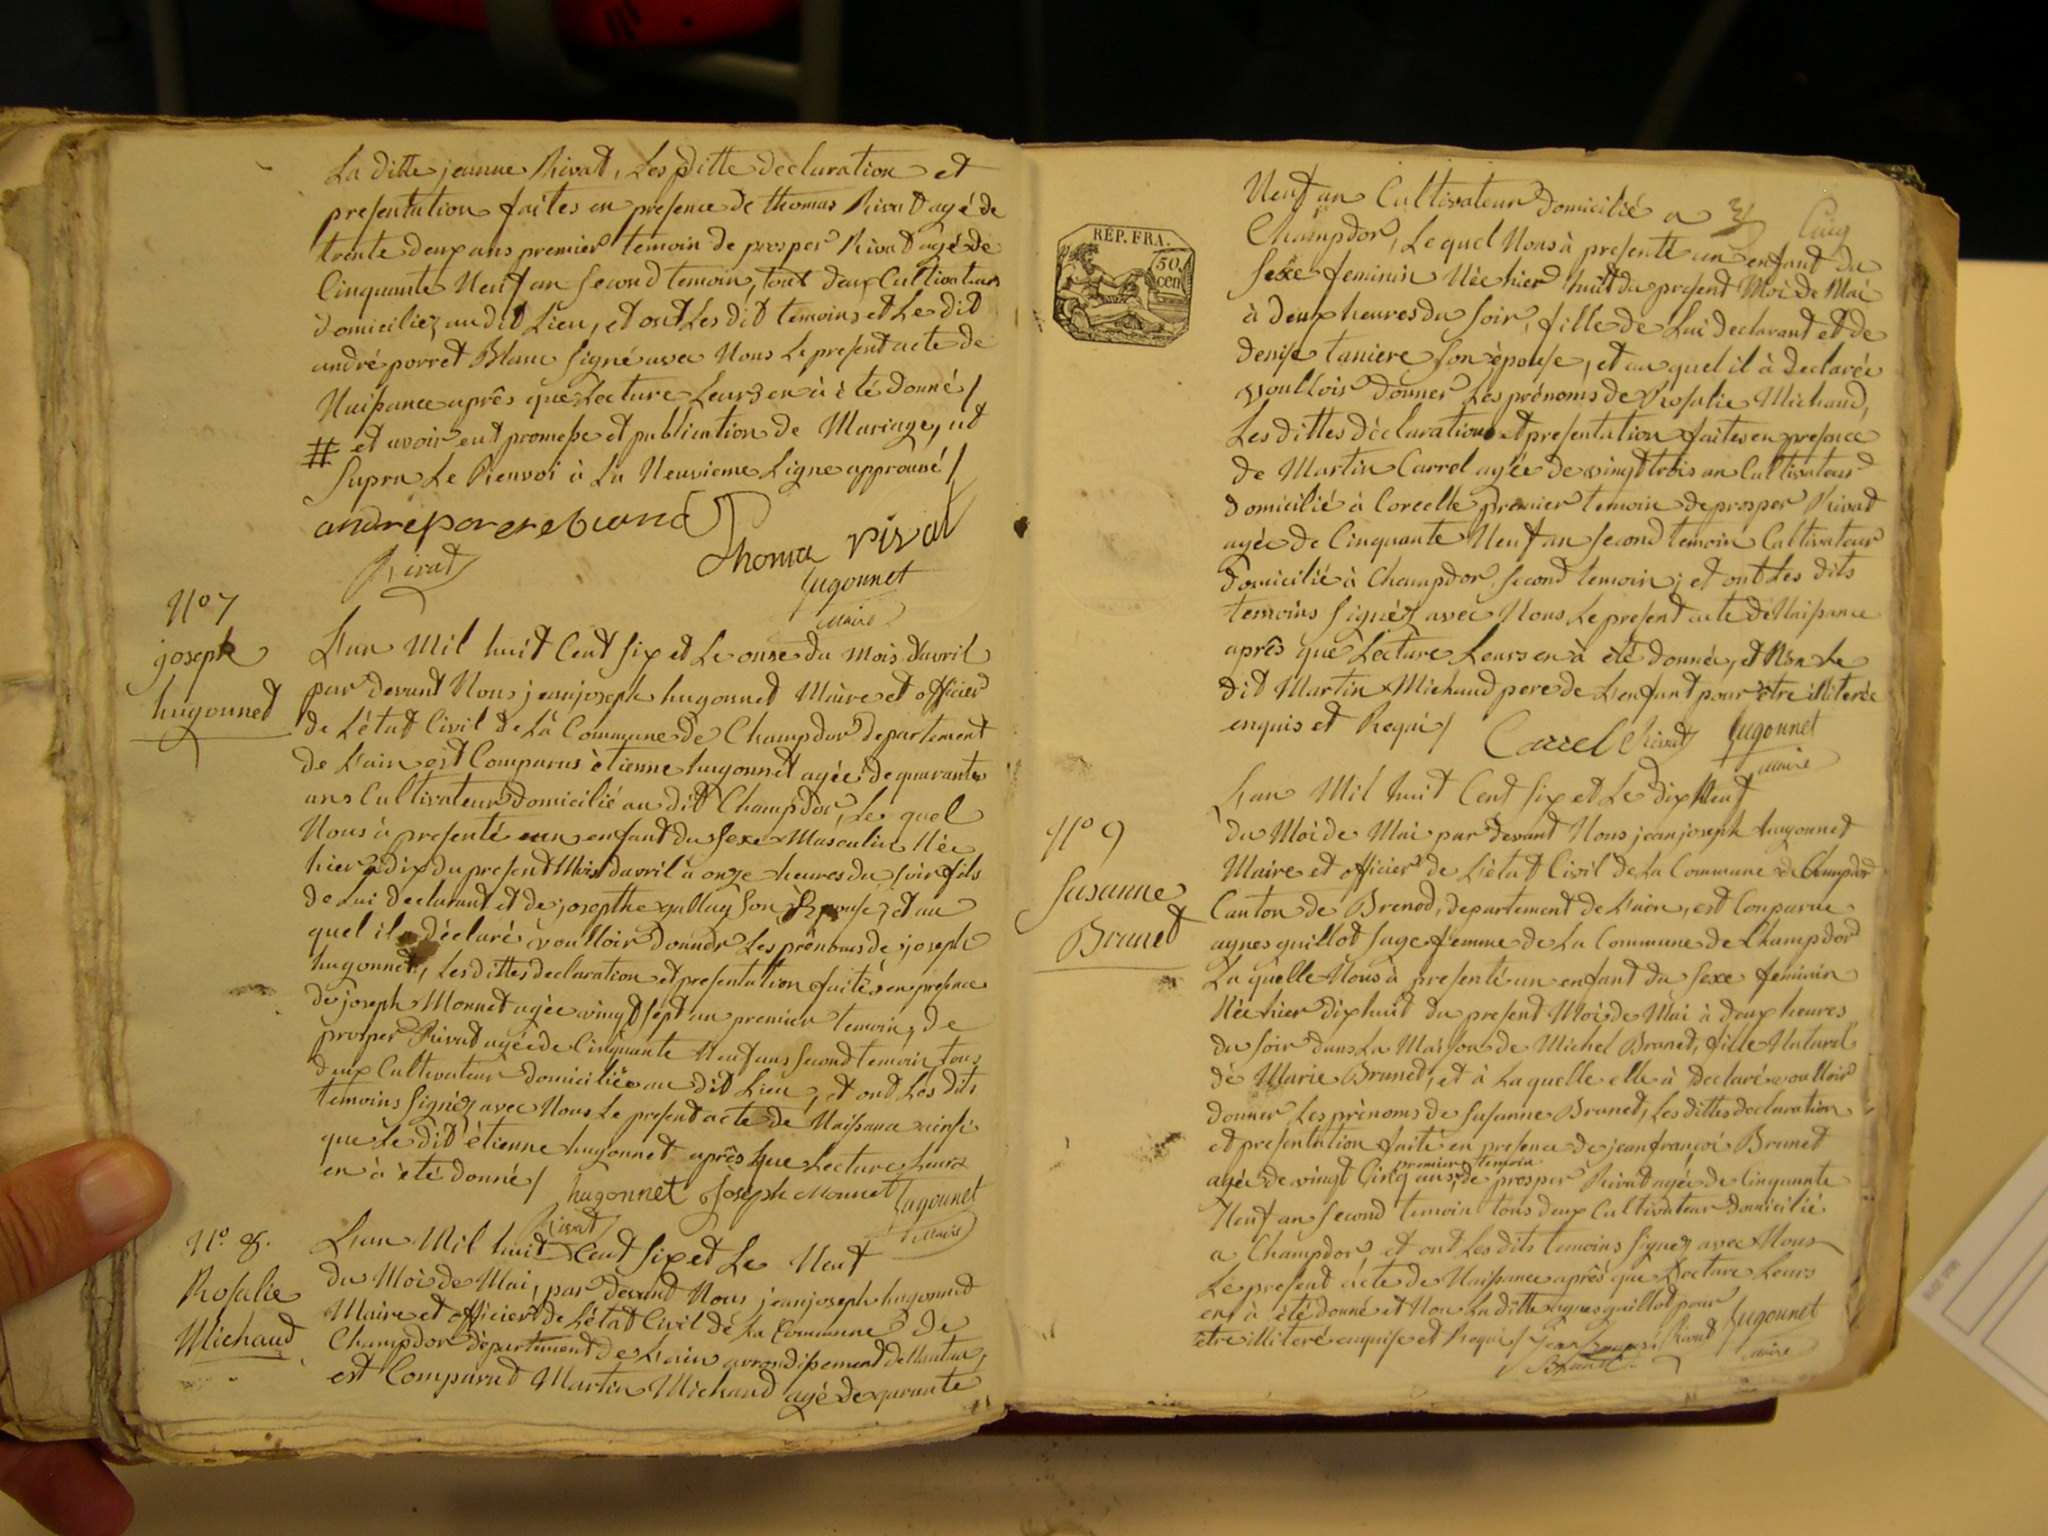 La ditte jeanne Rivat, Les ditte declaration et
presentation faites en presence de thomas Rivat agé de
trente deux ans premier temoin de prosper Rivat agé de
Cinquante Neuf an Second temoin, tout deux Cultivateurs
domiciliez audit Lieu, et ont Les dit temoins et Le dit
andré porret Blanc Signé avec Nous Le present acte de
Naissance aprês que Lecture Leurs en à été donné /
# et avoir eut promesse et publication de Mariage, ut
Supra Le Renvoi à La Neuvieme Ligne approuvé /
andré porret blanc
Thoma rivat
Rivat
hugonnet
maire
N° 7
joseph
hugonnet
L'an Mil huit Cent Six et Le onze du Mois d'avril
par devant Nous jean joseph hugonnet Maire et officier
de L'état Civil de La Commune de Champdor departement
de L'ain est Comparus ètienne hugonnet agée de quarante
ans Cultivateur domicilié au dit Champdor, Le quel
Nous à presenté un enfant du Sexe Masculin Née
hier dix du present Mois davril à onze heures du soir fils
de Lui declarant et de josepthe vallay Son Epouse, et au
quel il a déclaré voulloir donner Les prénoms de joseph
hugonnet, Les dittes declaration et presentation faites en presence
de joseph Monnet agée vingt sept an premier temoin, de
prosper Rivat agée de Cinquante Neuf ans Second temoin, tous
deux Cultivateur domiciliée au dit Lieu, et ont Les dits
temoins Signéz avec Nous Le present acte de Naissance ainsi
que Le dit étienne hugonnet aprês que Lecture Leurs
en à été donné /
hugonnet Joseph Monnet hugonnet
Rivat
maire
N° 8.
Rosalie
Michaud
L'an Mil huit Cent Six et Le Neuf
du Moi de Mai, par devant Nous jean joseph hugonnet
Maire et officier de L'état Civil de La Commune de
Champdor département de L'ain arrondissement de Nantua,
est Comparut Martin Michaud agé de quarante
REP. FRA.
50
cen
Neuf an Cultivateur domicilié a
Champdor, Le quel Nous à presenté un enfant du
Sexe feminin Née hier huit du present Moi de Mai
à deux heures du Soir, fille de Lui declarant et de
denise taniere Son épouse, et au quel il à declarée
voulloir donner Les prénoms de Rosalie Michaud,
Les dittes déclaration et presentation faites en presence
de Martin Carrel agée de vingt trois an Cultivateur
domicilié à Corcelle premier temoin de prosper Rivat
agée de Cinquante Neuf an Second temoin Cultivateur
domicilié à Champdor, Second temoin; et ont Les dits
temoins Signéz avec Nous Le present acte de Naissance
aprês que Lecture Leurs en à été donnée, et Non Le
dit Martin Michaud pere de L'enfant pour être illiterée
enquis et Requi /
Carrel Rivat hugonnet
maire
N° 9
Susanne
Brunet
L'an Mil huit Cent Six et Le dix Neuf
du Moi de Mai par devant Nous jean joseph hugonnet
Maire et officier de L'état Civil de La Commune de Champdor
Canton de Brenod, departement de L'ain, est Comparue
agnes guillot Sage femme de La Commune de Champdor
La quelle Nous à presenté un enfant du Sexe feminin
Née hier dix huit du present Moi de Mai à deux heures
du Soir dans La Maison de Michel Brunet, fille Naturel
de Marie Brunet, et à Laquelle elle à déclaré voulloir
donner Les prénoms de Susanne Brunet, Les dittes declaration
et presentation faite en presence de jean françoi Brunet
premier temoin
agée de vingt Cinq ans, de prosper Rivat agée de Cinquante
Neuf an Second temoin tous deux Cultivateur domicilié
a Champdor et ont Les dits temoins Signez avec Nous
Le present acte de Naissance aprês que Lecture Leurs
en à été donné et Non La ditte agnes guillot pour
être illiteré enquise et Requi / jean françoi Rivat hugonnet
Brunet
maire